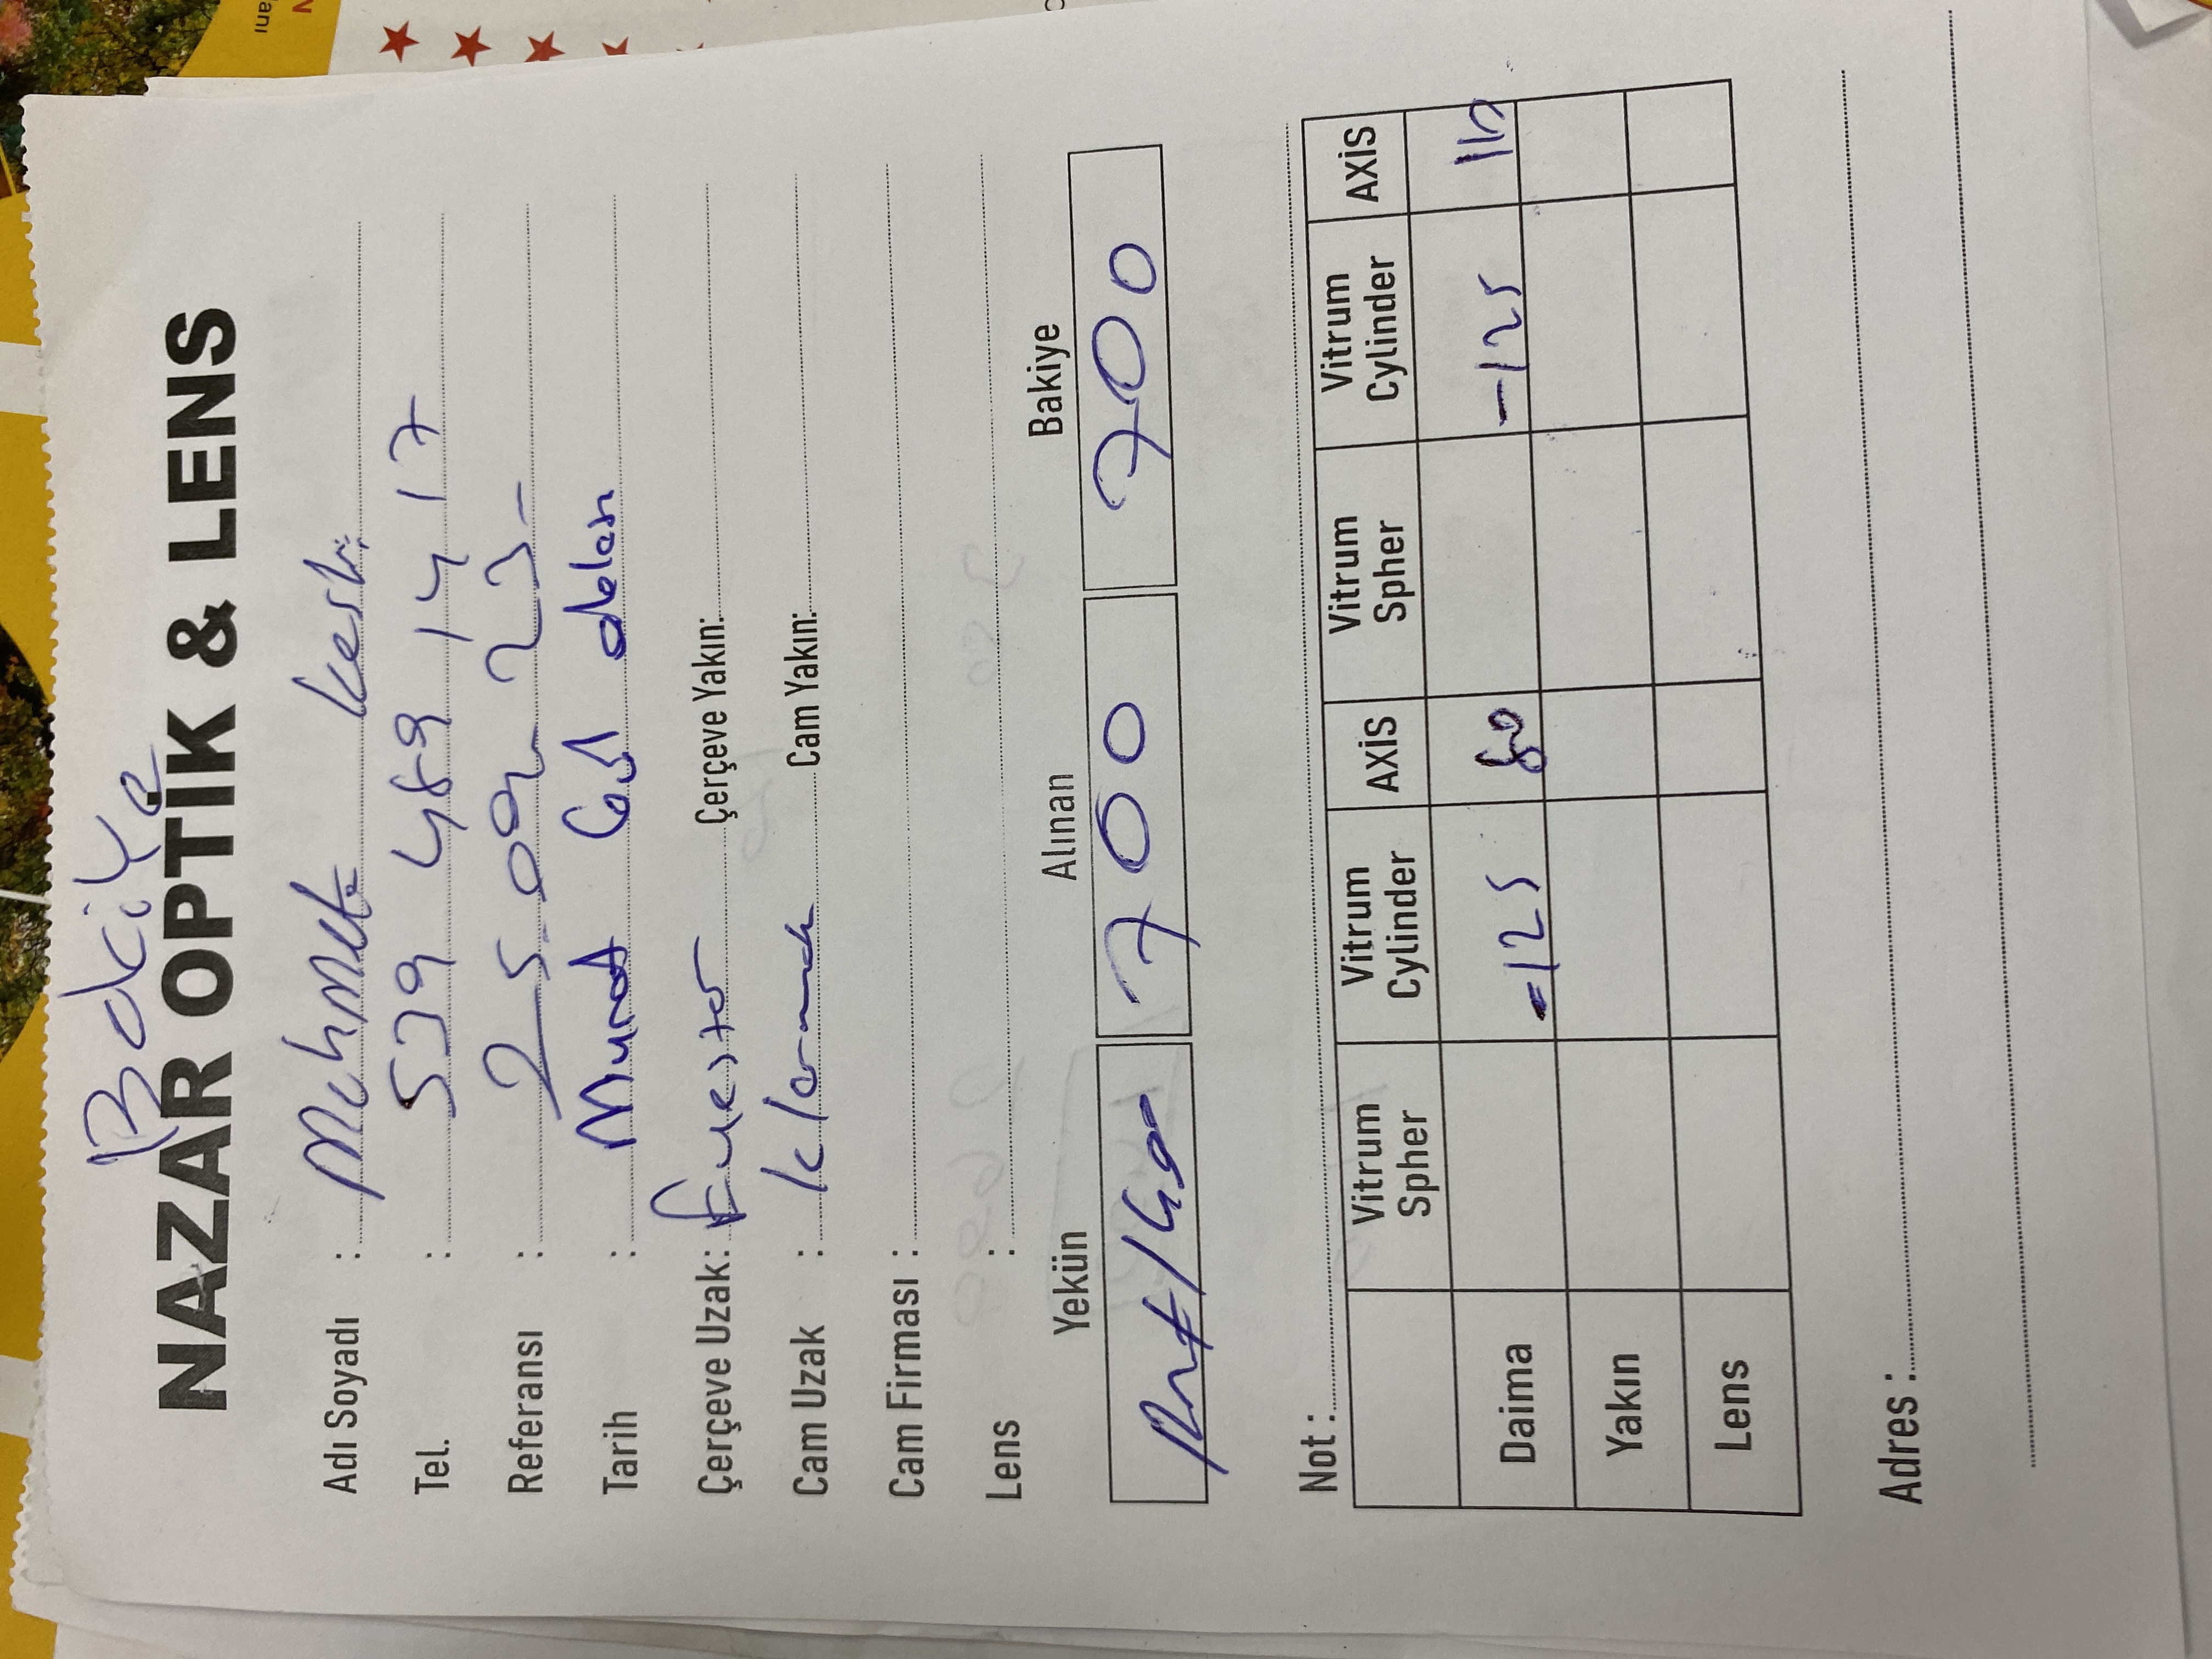 Bakiye
NAZAR OPTİK & LENS
Adı Soyadı : Mehmet
Tel. : 539 489 14 17
Referansı : 25.09. 23-
Tarih : Murat
Çerçeve Uzak: Çerçeve Yakın:
Cam Uzak : Cam Yakın:
Cam Firması :
Lens :
Yekün Alınan Bakiye
1400 700 700
Not :
Vitrum Spher Vitrum Cylinder AXİS Vitrum Spher Vitrum Cylinder AXİS
Daima -125 80 -125 110
Yakın
Lens
Adres :